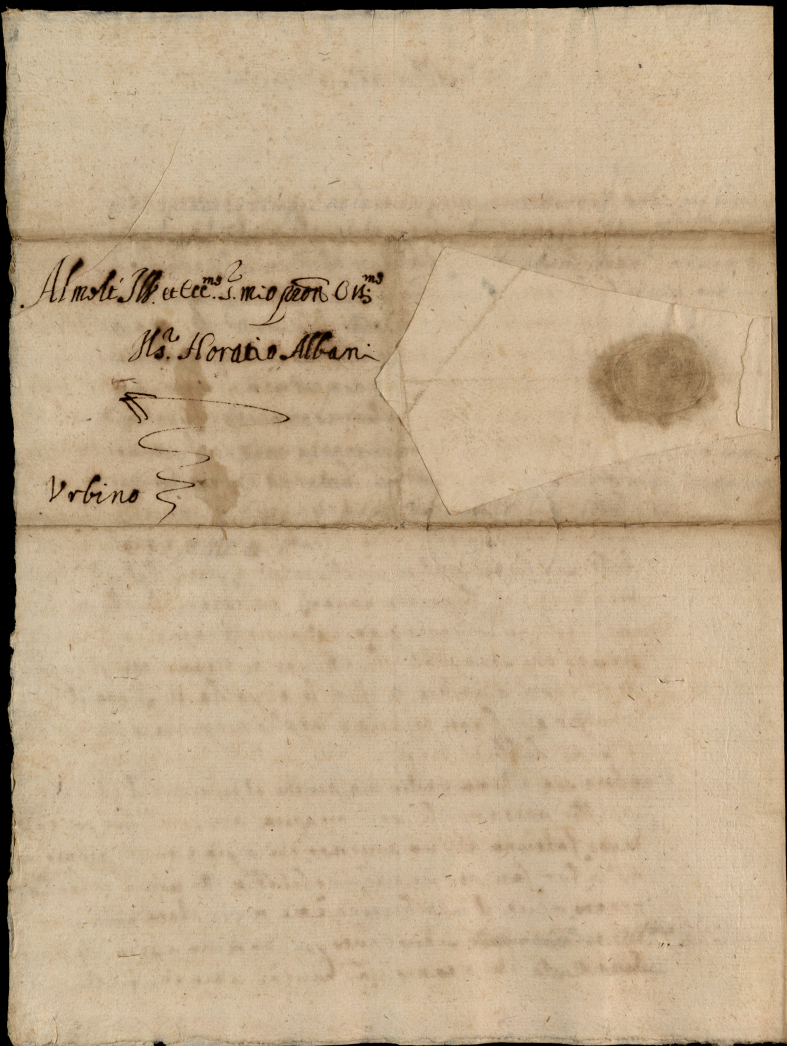 Al molt' Ill. et Ecc.mo S.r mio pron Oss.mo
Il S.r Horatio Albani
Urbino